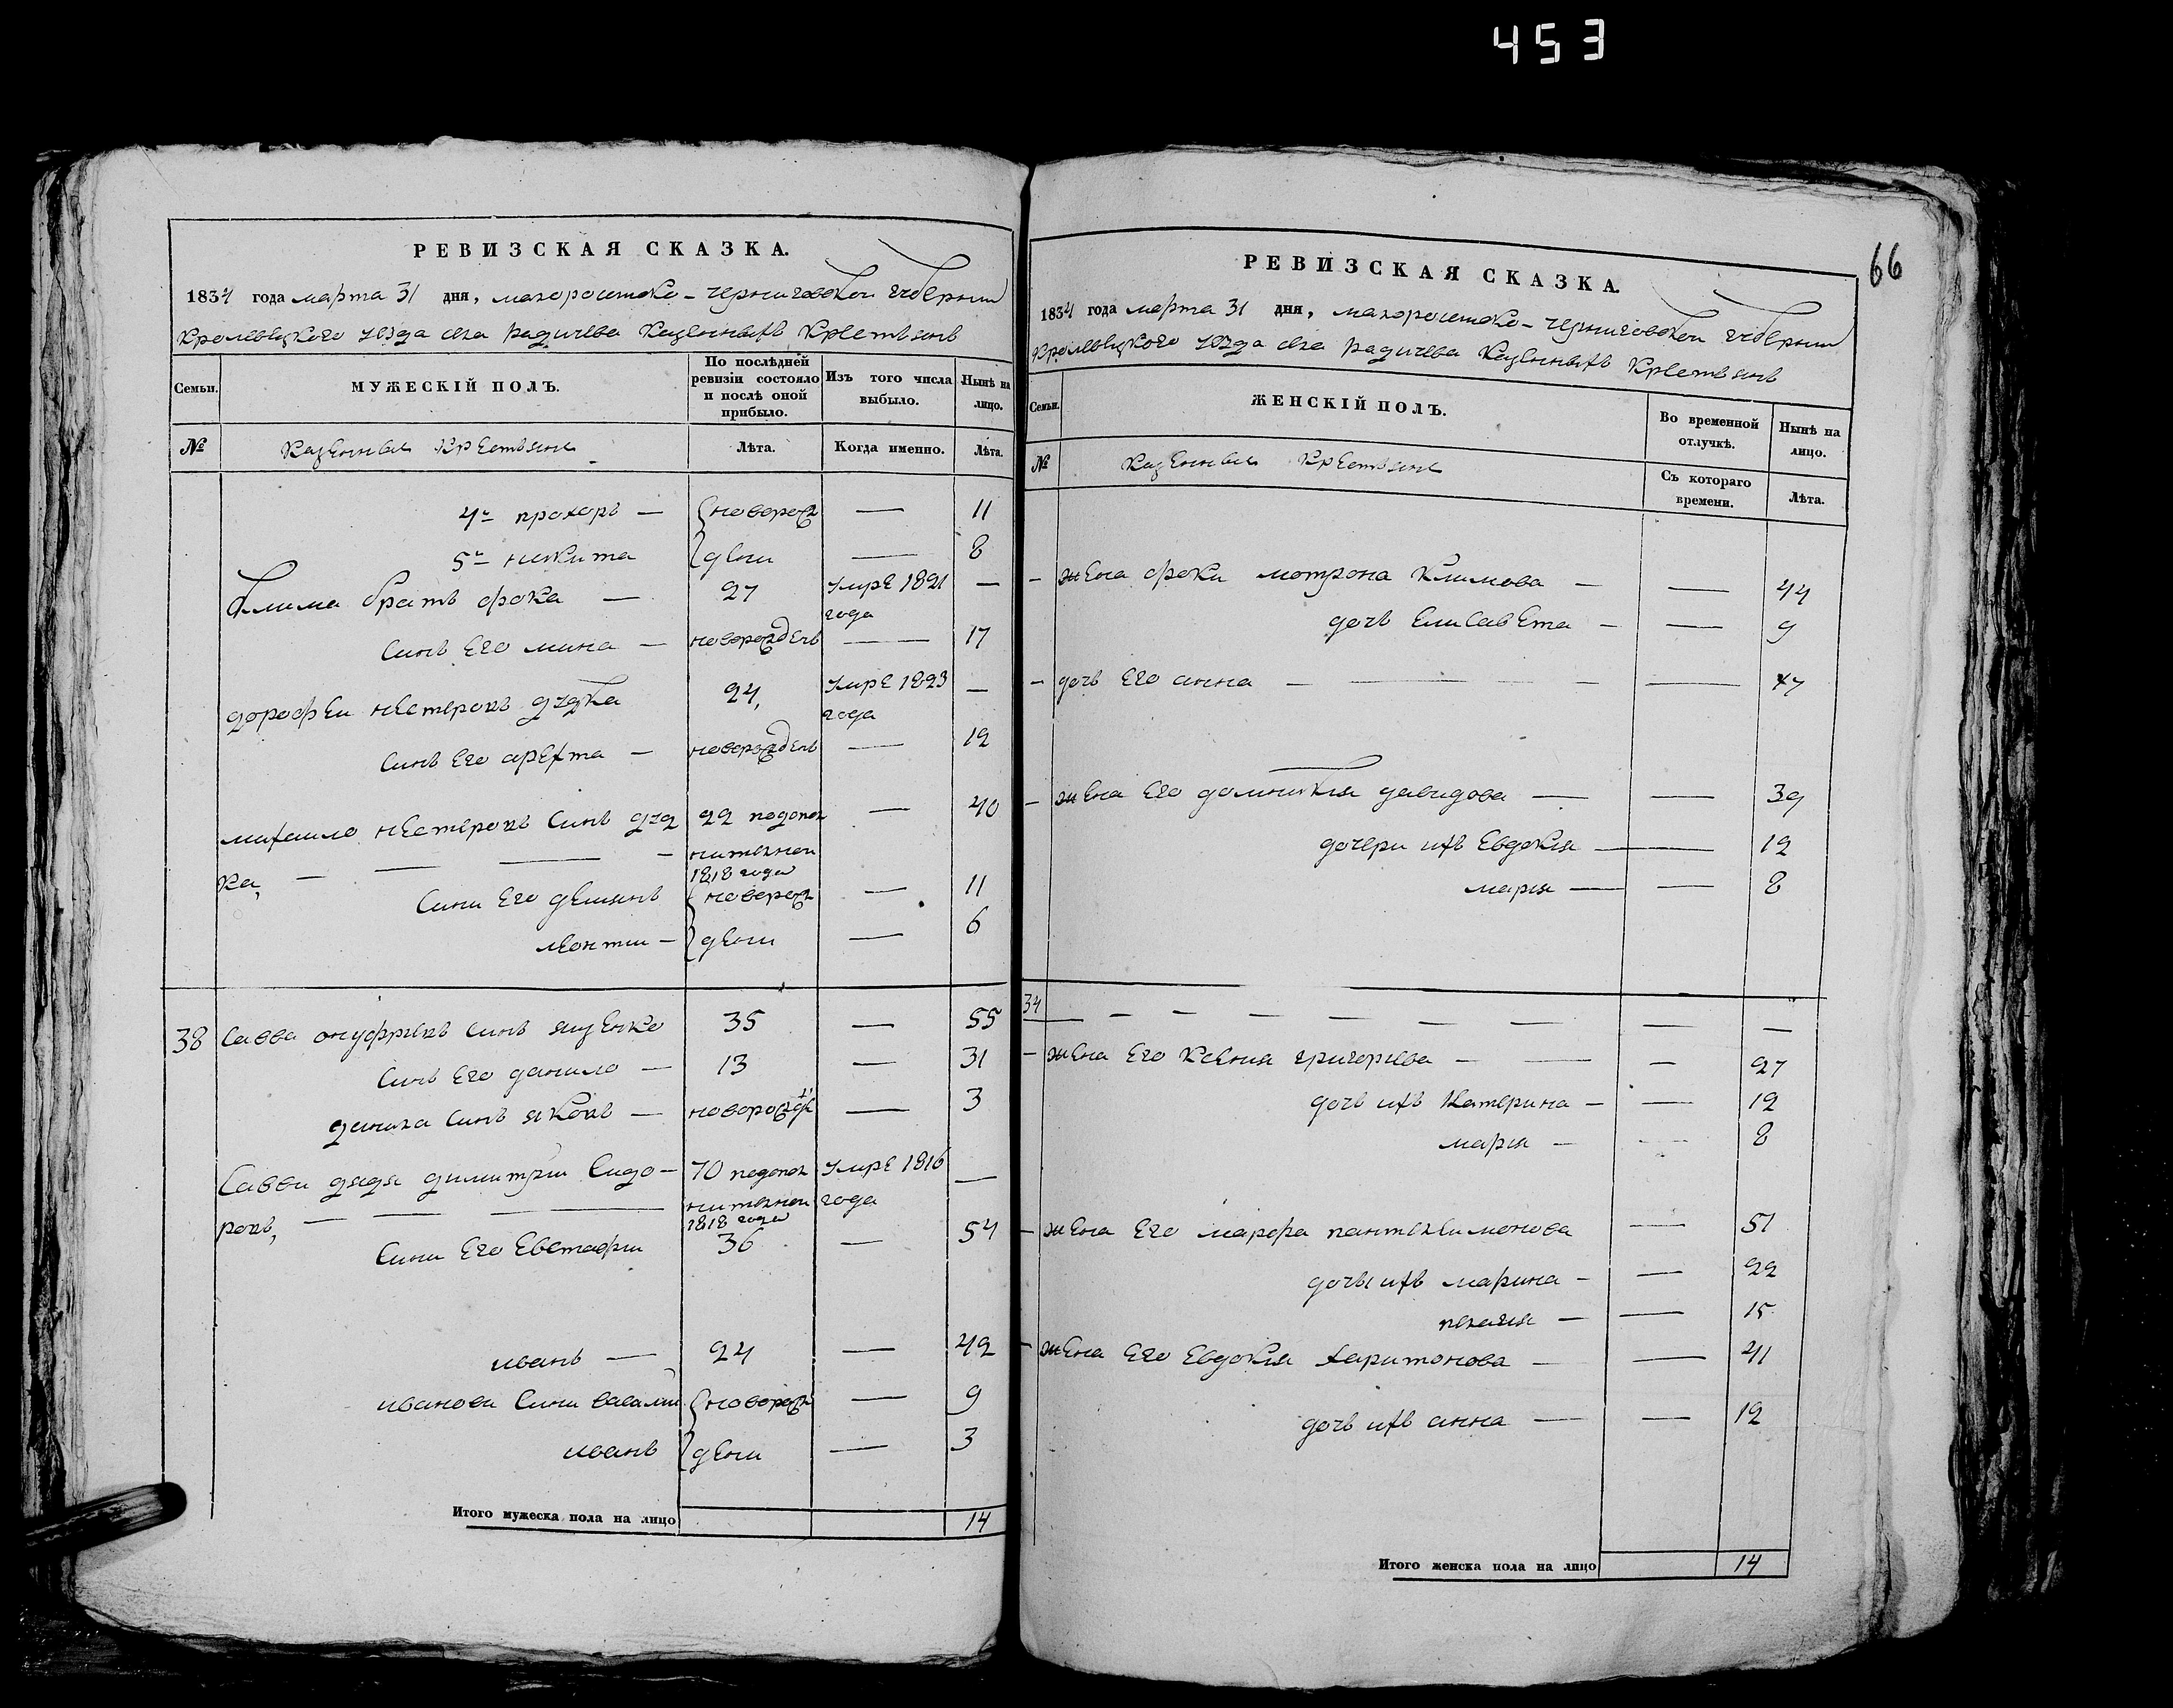 453
66
РЕВИЗСКАЯ СКАЗКА.
1834 года марта 31 дня, малоросийско-черниговской губернии
Кролевецкого уезда села Радичева Казенныхъ Крестьянъ
Семьи. МУЖЕСКІЙ ПОЛЪ. По послѣдней ревизіи состояло и послѣ оной прибыло. Изъ того числа выбыло. Нынѣ на лицо.
№ Казенныи Крестьяни Лѣта. Когда именно. Лѣта.
4й прохоръ — новорож — 11
5й никита дени — 8
Клима братъ фока — 27 умре 1821 года —
синъ его мина — новорожденъ — 17
дорофеи нестеровъ дудка 24, умре 1823 года —
синъ его арехта — новорожденъ — 12
михаило нестеровъ синъ дуд 22 подопол — 40
ка, — — — — нителнои 1818 года
сини его демянъ новорож — 11
леонтии — дени — 6
38 Савва онуфриевъ синъ ященко 35 — 55
синъ его данило — 13 — 31
данила синъ яковъ — новорожде — 3
Саввы дядя димитрии Сидо- 70 подопол умре 1816 —
ровъ, — — — нителнои 1818 года года
сини его Евстафии 36 — 54
иванъ — 24 — 42
иванови сини василии новорож — 9
иванъ дени — 3
Итого мужеска пола на лицо 14
РЕВИЗСКАЯ СКАЗКА.
1834 года марта 31 дня, малоросийско-черниговской губернии
Кролевецкого уезда села Радичева Казенныхъ Крестьянъ
Семьи. ЖЕНСКІЙ ПОЛЪ. Во временной отлучкѣ. Нынѣ на лицо.
№ Казенныи Крестьяни Съ котораго времени. Лѣта.
— жена фоки мотрона Климова — — 44
дочь Елисавета — — 9
— дочь его анна — — — 17
— жена его домникия давидова — — 39
дочери ихъ Евдокия — — 12
мария — — 8
34 — — — — — — — — —
— жена его Ксения григориева — — — 27
дочь ихъ Катерина — — 12
мария — — 8
— жена его марфа пантелеимонова — 51
дочы ихъ марина — — 22
пелагия — — 15
— жена его Евдокия харитонова — — 41
дочь ихъ анна — — 12
Итого женска пола на лицо 14